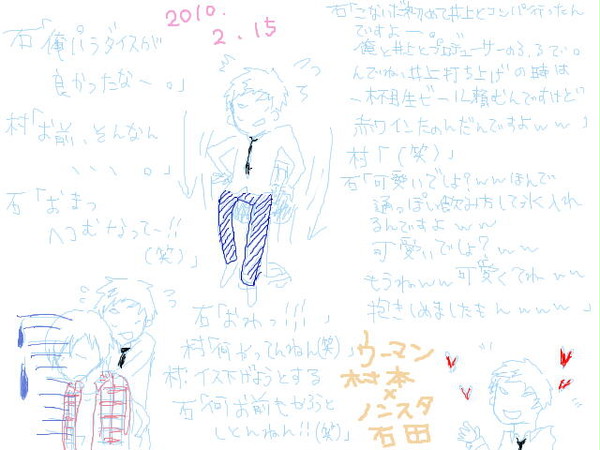 2010.
2.15
石「俺パラダイスが
良かったなー。」
村「お前、そんなん
、、、。」
石「おまっ
ヘコむなってー!!
(笑)」
石「こないだ初めて井上とコンパ行ったん
ですよー。
俺と井上とプロデューサーの3、3で。
んでね、井上打ち上げの時は
一杯目生ビール頼むんですけど
赤ワインたのんだんですよww」
村「(笑)」
石「可愛いでしょ?wwほんで
通っぽい飲み方して
るんですよww
可愛いでしょ?ww
もうねww可愛くてねww
抱きしめましたもんwww」
石「おわっ!!!」
村「何やってんねん(笑)」
村、イス下げようとする
石「何お前も
しとんねん!!(笑)」
ウーマン
村本
×
ノンスタ
石田